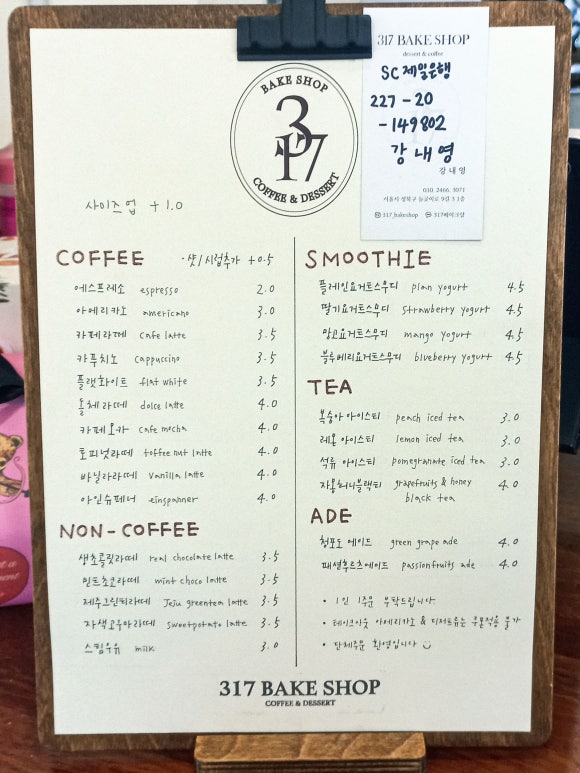 BAKE SHOP
317
COFFEE & DESSERT
317 BAKE SHOP
dessert & coffee
SC제일은행
227-20
-149802
강내영
강 내 영
010. 2466. 3071
317_bakeshop 317베이크샵
사이즈 업 +1.0
COFFEE ·샷/시럽추가 +0.5
에스프레소 espresso 2.0
아메리카노 americano 3.0
카페라떼 cafe latte 3.5
카푸치노 cappuccino 3.5
플랫화이트 flat white 3.5
돌체라떼 dolce latte 4.0
카페모카 cafe mocha 4.0
토피넛라떼 toffee nut latte 4.0
바닐라라떼 vanilla latte 4.0
아인슈페너 einspanner 4.0
NON-COFFEE
생초콜릿라떼 real chocolate latte 3.5
민트초코라떼 mint choco latte 3.5
제주그린티라떼 Jeju greentea latte 3.5
자색고구마라떼 sweetpotato latte 3.5
스팀우유 milk 3.0
SMOOTHIE
플레인요거트스무디 plain yogurt 4.5
딸기요거트스무디 strawberry yogurt 4.5
망고요거트스무디 mango yogurt 4.5
블루베리요거트스무디 blueberry yogurt 4.5
TEA
복숭아 아이스티 peach iced tea 3.0
레몬 아이스티 lemon iced tea 3.0
석류 아이스티 pomegranate iced tea 3.0
자몽허니블랙티 grapefruits & honey 4.0
black tea
ADE
청포도 에이드 green grape ade 4.0
패션후르츠에이드 passionfruits ade 4.0
• 1인 1주문 부탁드립니다.
• 테이크아웃 아메리카노 & 디저트류는 쿠폰적용 불가
• 단체주문 환영입니다
317 BAKE SHOP
COFFEE & DESSERT